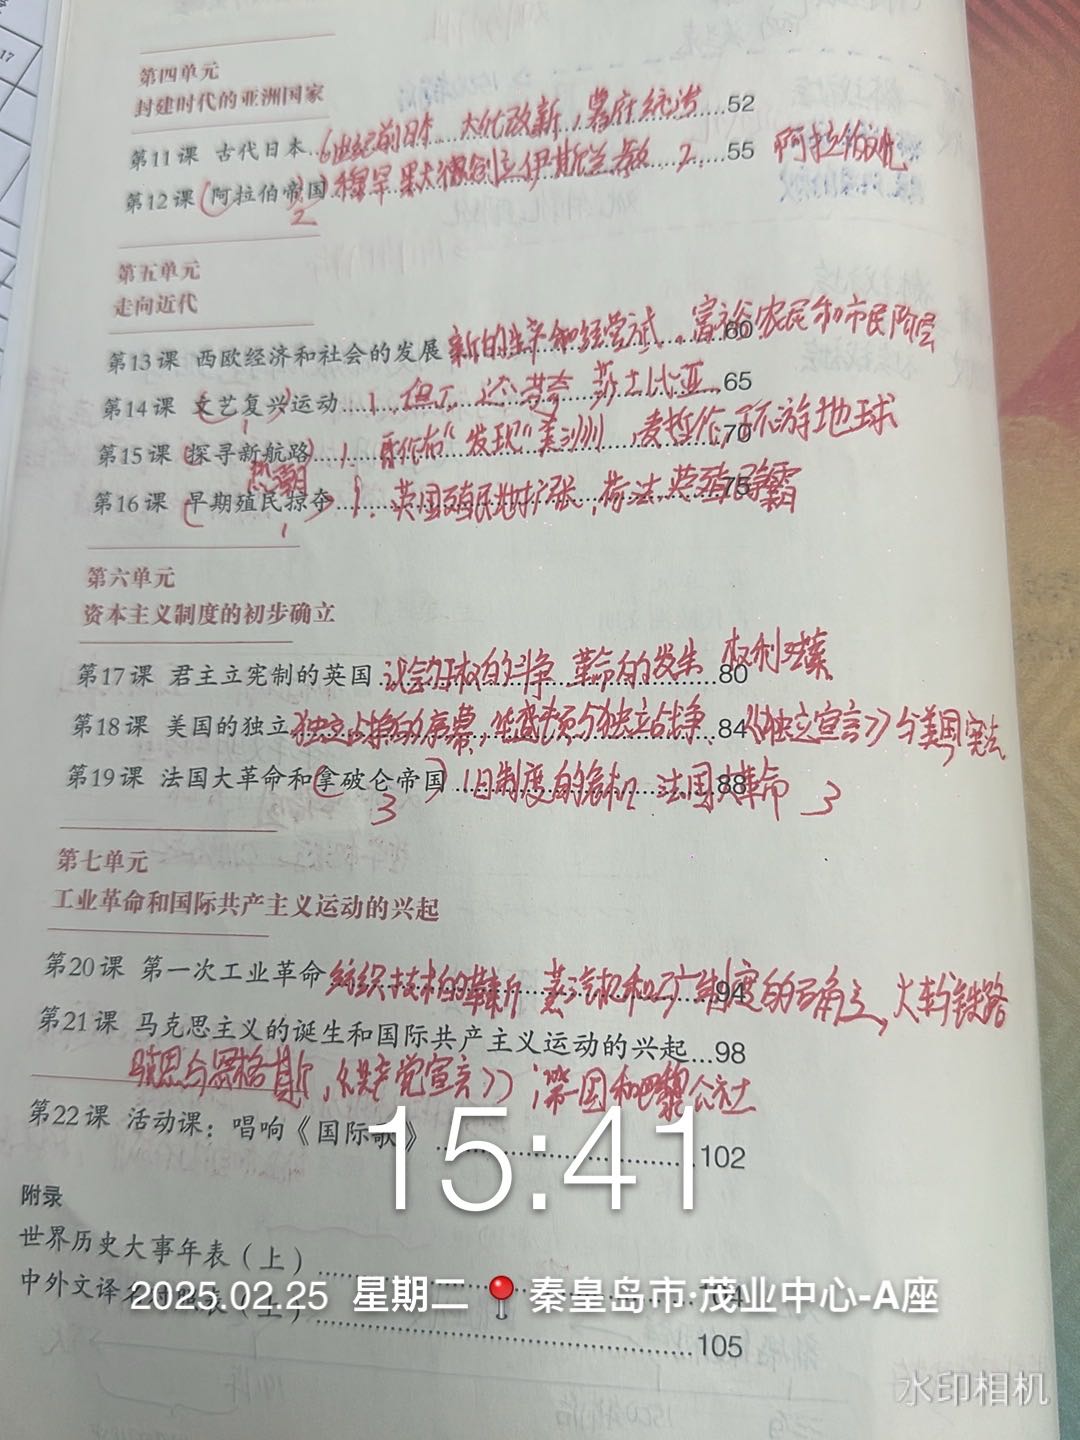 17
第四单元
封建时代的亚洲国家
第11课 古代日本 6世纪前日本 大化改新,幕府统治 52
第12课 (阿拉伯帝国) 穆罕默德创立伊斯兰教 2 55 阿拉伯文化
2
第五单元
走向近代
第13课 西欧经济和社会的发展 新的生产和经营方式,富裕农民和市民阶层 60
第14课 (文艺复兴)运动 1.但丁 达芬奇 莎士比亚 65
1
第15课 (探寻新航路) 1.哥伦布“发现”美洲 ,麦哲伦环游地球 70
热潮
第16课 (早期殖民掠夺) 1.英国殖民地扩张,荷法英殖民争霸 75
1
第六单元
资本主义制度的初步确立
第17课 君主立宪制的英国 议会对王权的斗争 革命的发生 权利法案 80
第18课 美国的独立 独立战争的序幕,华盛顿与独立战争 84 《独立宣言》与美国宪法
第19课 法国大革命和(拿破仑帝国) 旧制度的危机 法国大革命 3 88
3
第七单元
工业革命和国际共产主义运动的兴起
第20课 第一次工业革命 纺织技术的革新 蒸汽机和工厂制度的确立,火车与铁路 94
第21课 马克思主义的诞生和国际共产主义运动的兴起...98
马克思与恩格斯,《共产党宣言》 ;第一国和巴黎公社
第22课 活动课:唱响《国际歌》 102
15:41
附录
世界历史大事年表(上) 104
中外文译名对照表(上) 105
2025.02.25 星期二 秦皇岛市·茂业中心-A座
水印相机